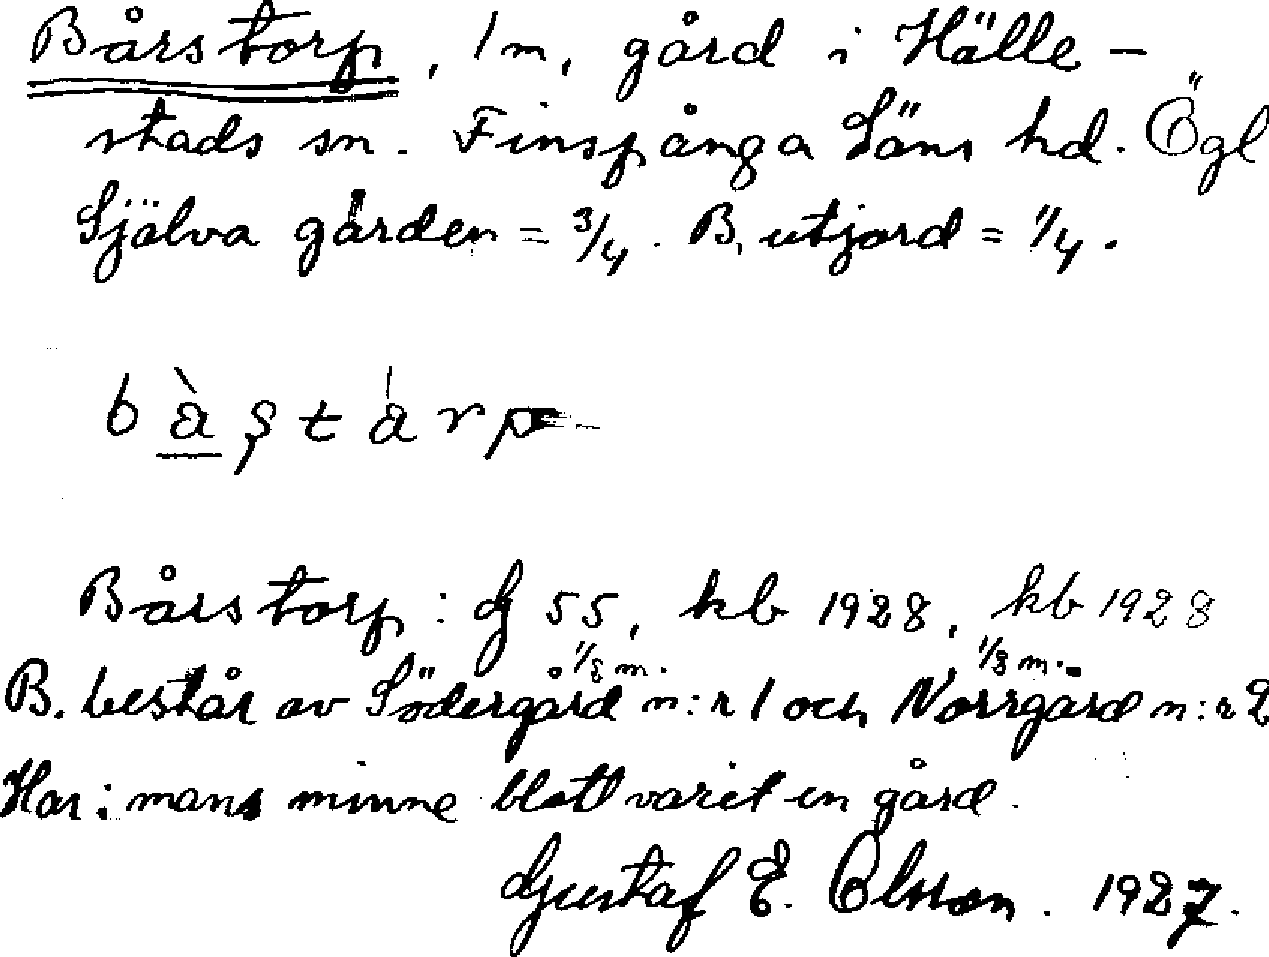 Bårstorp, 1 m, gård i Hälle-
stads sn. Finspånga Läns hd. Ögl
Själva gården = 3/4. B. utjord = 1/4.
bàştárp
Bårstorp: dj 55, kb 1928, kb 1928
1/8 m. 1/8 m.
B. består av Södergård n:r 1 och Norrgård n:r 2
Har i mans minne blott varit en gård.
Gustaf E. Olsson. 1927.